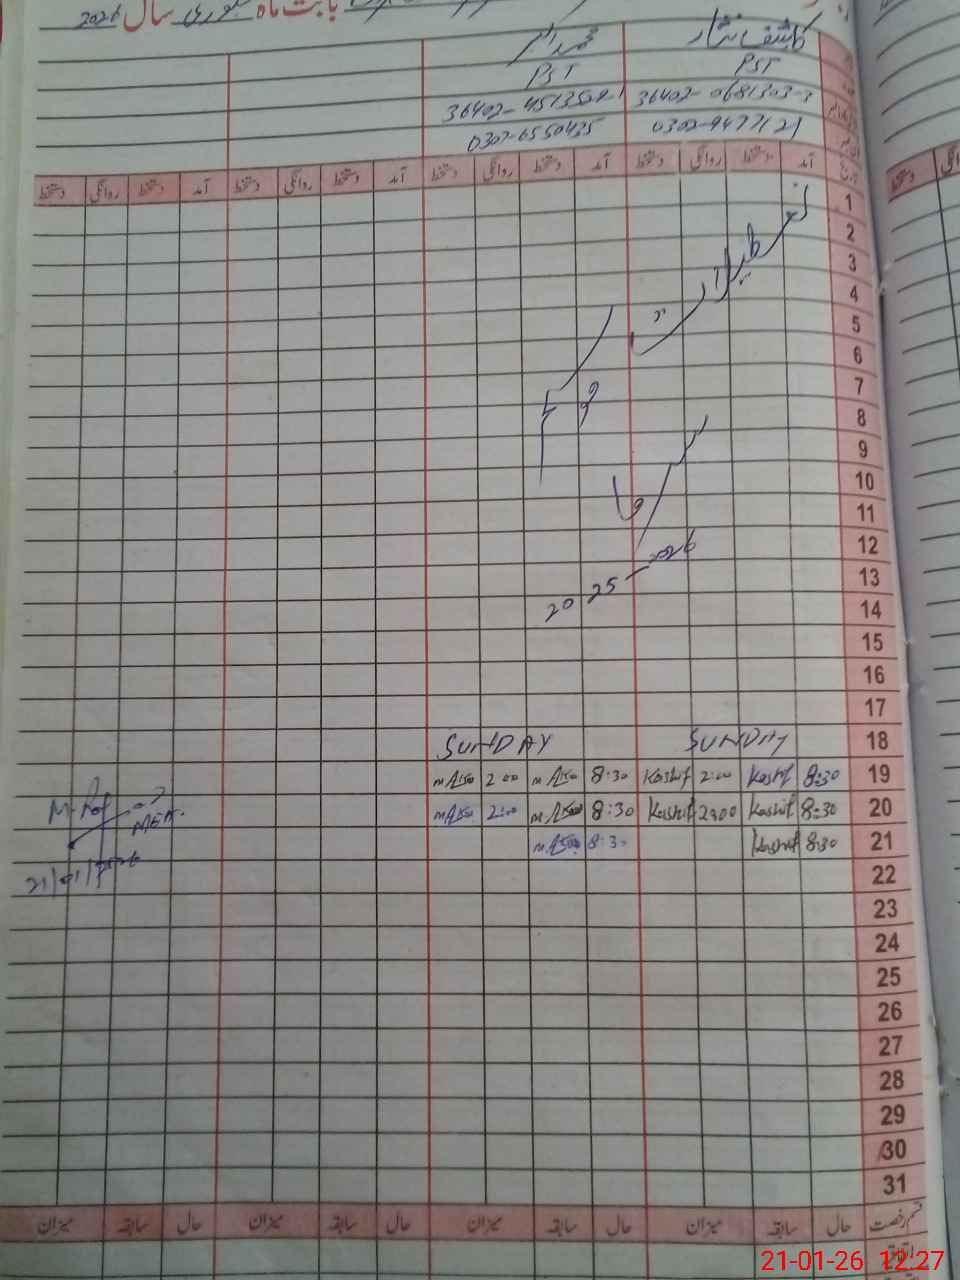 بابت ماہ جنوری سال 2026
کاشف نثار محمد اکرم
PST PST
36402-0681303-3 36402-4513502-1
0302-9477121 0307-6550435
تاریخ آمد دستخط روانگی دستخط آمد دستخط روانگی دستخط آمد دستخط روانگی دستخط آمد دستخط روانگی دستخط
1
2
3
4
5
6
7
8
9
10
11
12
13
14
تعطیلات
موسم
سرما
2025-2026
15
16
17
18 SUNDAY SUNDAY
19 8:30 Kashif 2:00 Kashif 8:30 2:00
20 8:30 Kashif 2:00 Kashif 8:30 2:00
21 8:30 Kashif 8:30
21/01/2026
22
23
24
25
26
27
28
29
30
31
قسم رخصت حال سابقہ میزان حال سابقہ میزان حال سابقہ میزان حال سابقہ میزان
اتفاقیہ
21-01-26 12:27